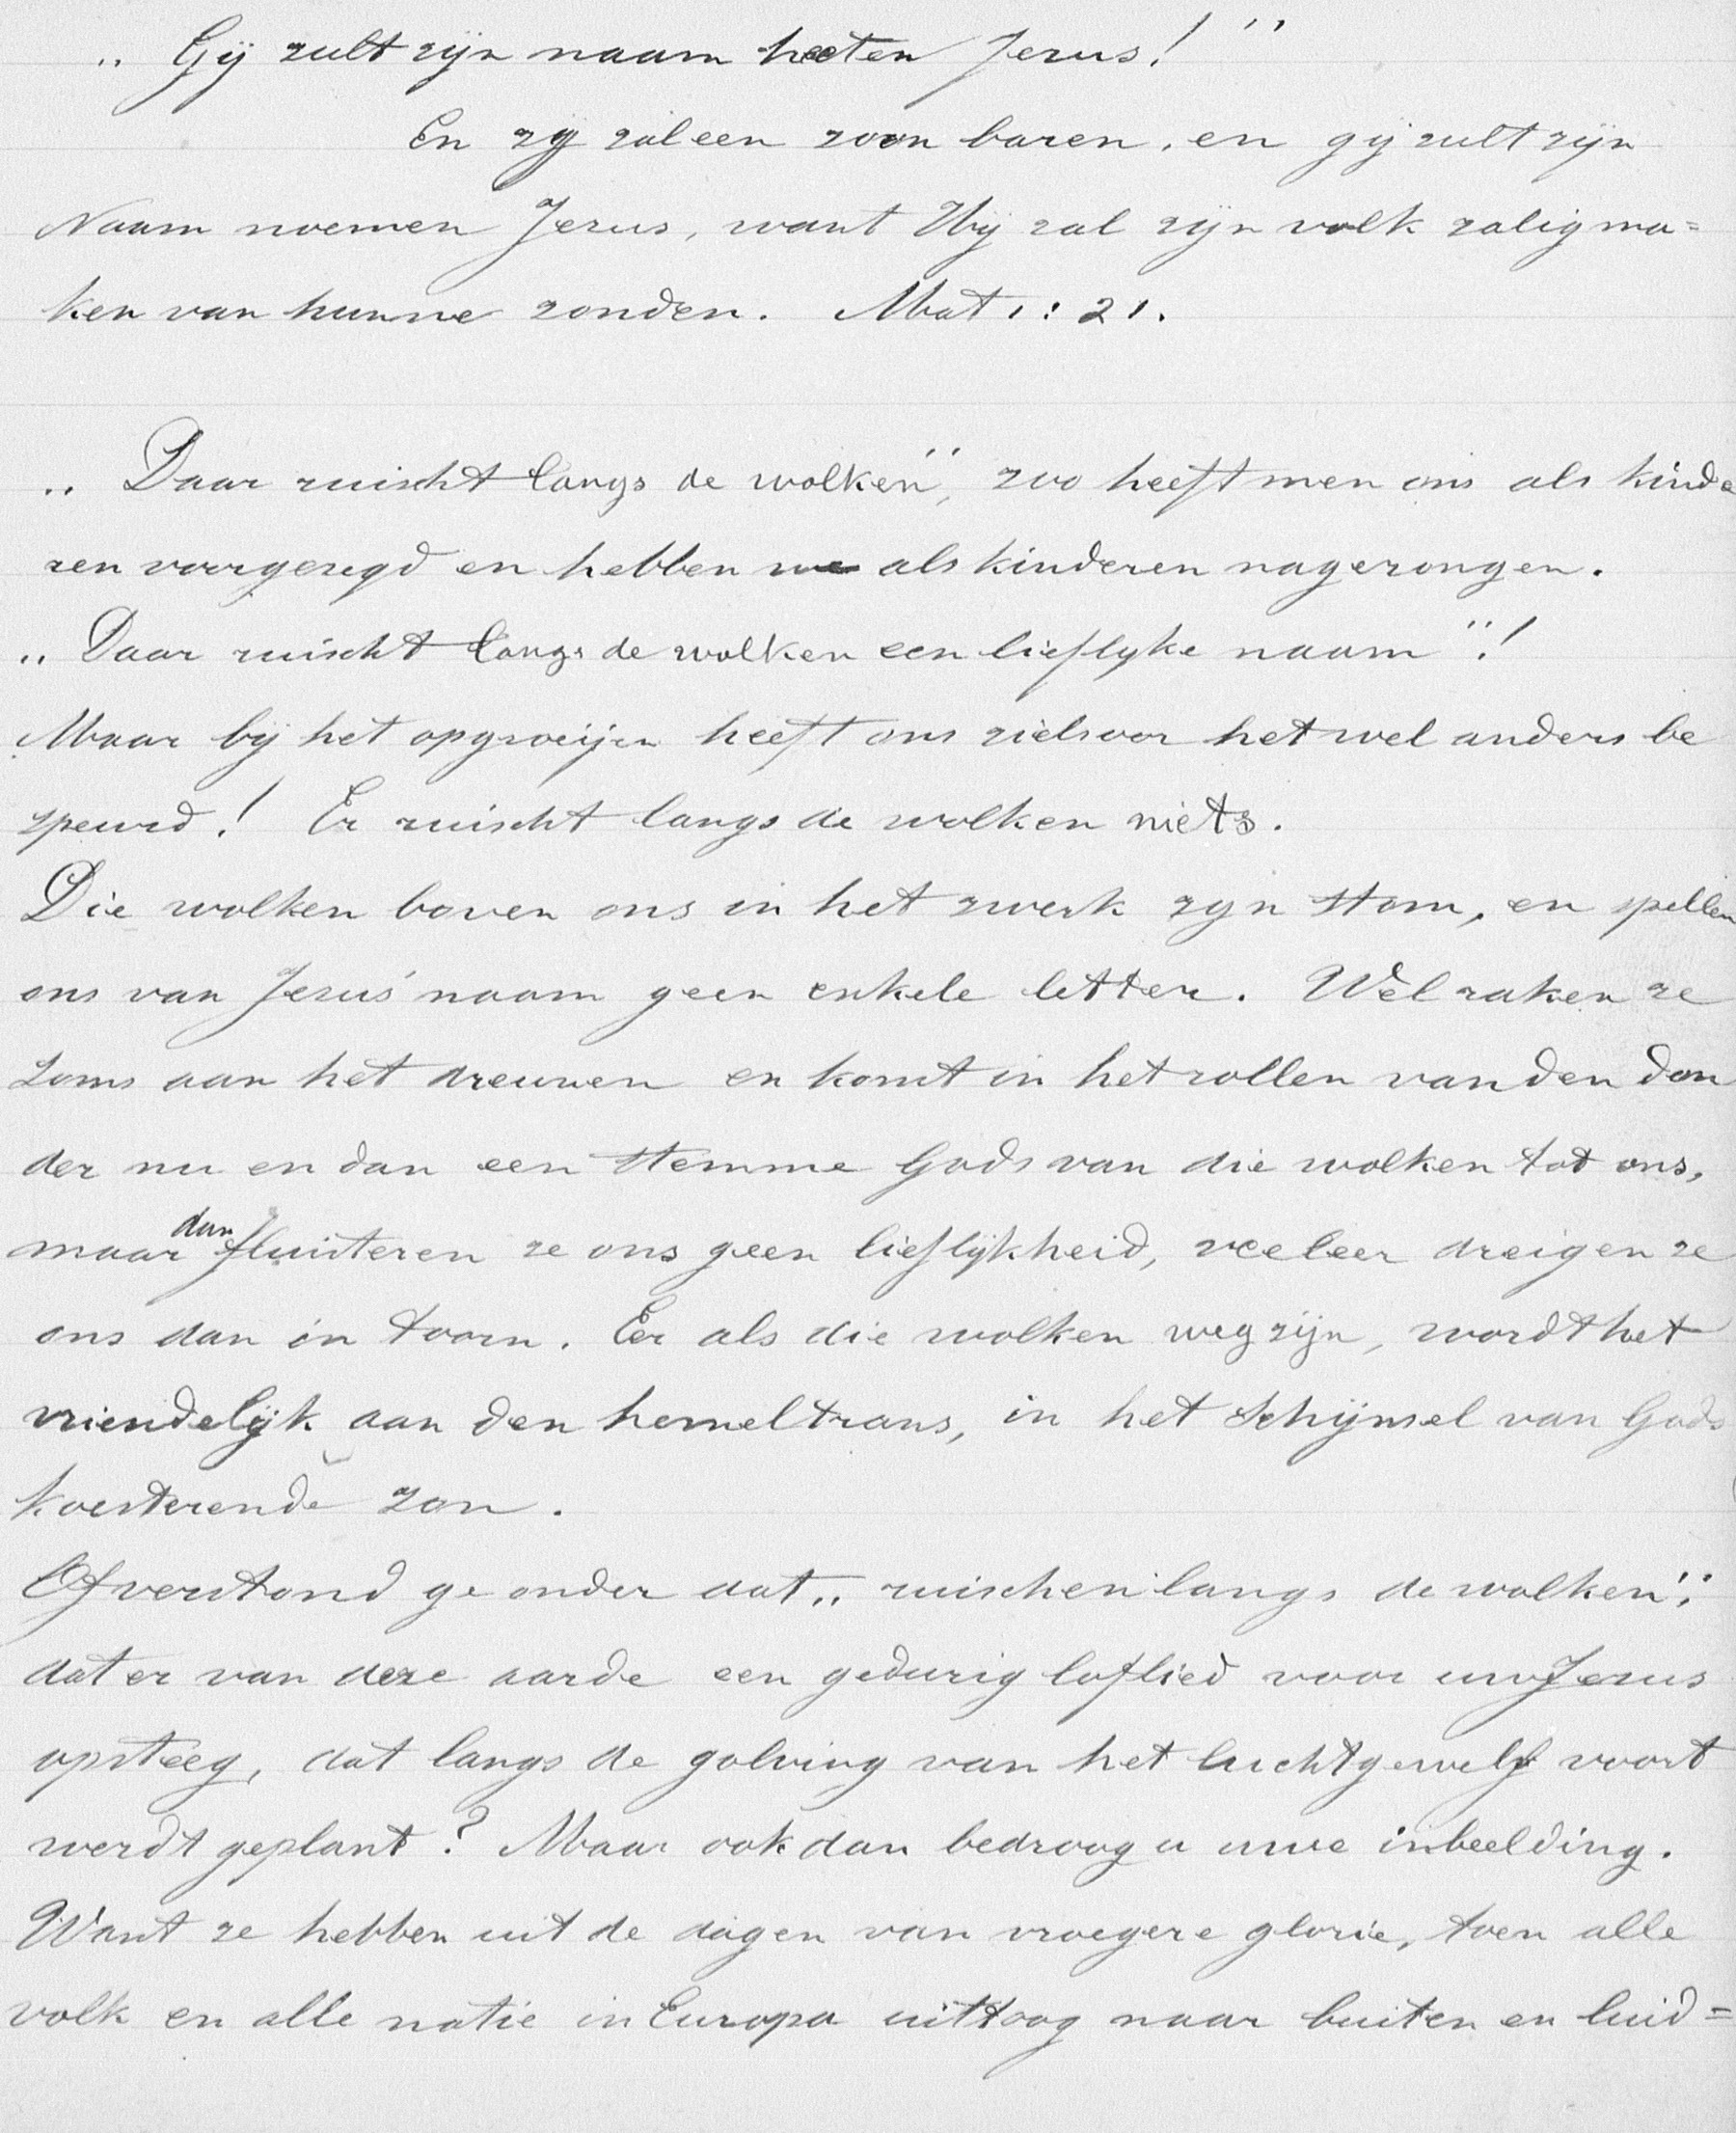 „ Gij zult zijn naam heeten Jezus! ”
En zij zal een zoon baren, en gij zult zijn
Naam noemen Jezus, want Hij zal zijn volk zaligma=
ken van hunne zonden. Mat 1:21.
„ Daar ruischt langs de wolken”, zoo heeft men ons als kinde
ren voorgezegd en hebben we als kinderen nagezongen.
„ Daar ruischt langs de wolken een lieflyke naam”!
Maar bij het opgroeijen heeft ons zielsoor het wel anders be
speurd! Er ruischt langs de wolken niets.
Die wolken boven ons in het zwerk zijn stom, en spellen
ons van Jezus' naam geen enkele letter. Wèl raken ze
soms aan het dreunen en komt in het rollen van den don
der nu en dan een stemme Gods van die wolken tot ons,
maar dan fluisteren ze ons geen lieflijkheid, veeleer dreigen ze
ons dan in toorn. Eer als die wolken weg zijn, wordt het
vriendelijk aan den hemeltrans, in het schijnsel van Gods
koesterende zon.
Of verstond ge onder dat „ ruischen langs de wolken”,
dat er van deze aarde een gedurig loflied voor uw Jezus
opsteeg, dat langs de golving van het luchtgewelf voort
werdt geplant? Maar ook dan bedroog u uwe inbeelding.
Want ze hebben uit de dagen van vroegere glorie, toen alle
volk en alle natie in Europa uittoog naar buiten en luid=